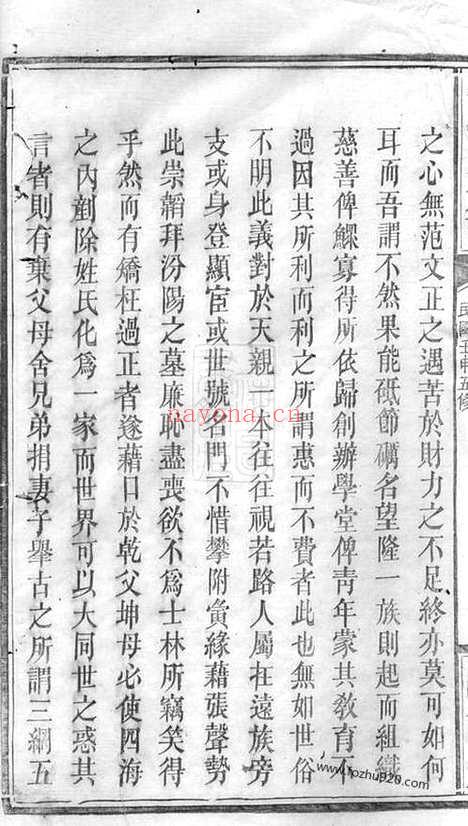 之心無范文正之遇苦於財力之不足終亦莫可如何
耳而吾謂不然果能砥節礪名望隆一族則起而組織
慈善俾鰥寡得所依歸創辦學堂俾青年蒙其敎育不
過因其所利而利之所謂惠而不費者此也無如世俗
不明此義對於天親一本往往視若路人屬在遠族旁
支或身登顯宦或世號名門不惜攀附夤緣藉張聲勢
此崇韜拜汾陽之墓廉恥盡喪欲不爲士林所竊笑得
乎然而有矯枉過正者遂藉口於乾父坤母必使四海
之內剷除姓氏化爲一家而世界可以大同世之惑其
言者則有棄父母舍兄弟捐妻子舉古之所謂三綱五
民國壬申五修
nayona.cn
www.fozhu920.com